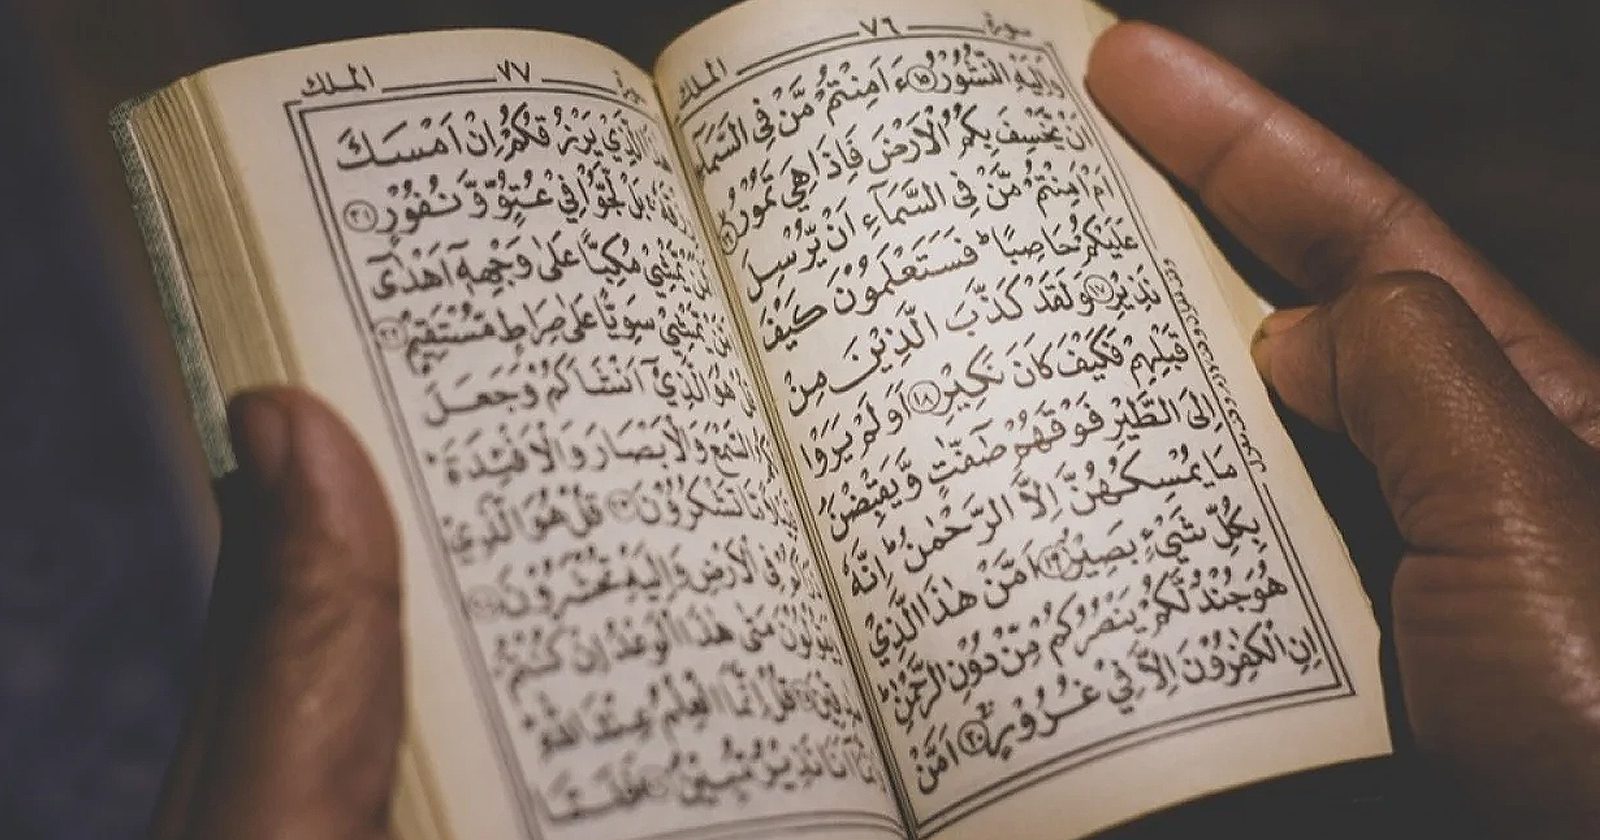 سورة ٧٦ الملك
وَاِلَيْهِ النُّشُوْرُ ۝١٥ ءَاَمِنْتُمْ مَّنْ فِى السَّمَآءِ
اَنْ يَّخْسِفَ بِكُمُ الْاَرْضَ فَاِذَا هِيَ تَمُوْرُ ۝١٦
اَمْ اَمِنْتُمْ مَّنْ فِى السَّمَآءِ اَنْ يُّرْسِلَ
عَلَيْكُمْ حَاصِبًا ؕ فَسَتَعْلَمُوْنَ كَيْفَ
نَذِيْرِ ۝١٧ وَلَقَدْ كَذَّبَ الَّذِيْنَ مِنْ
قَبْلِهِمْ فَكَيْفَ كَانَ نَكِيْرِ ۝١٨ اَوَلَمْ يَرَوْا
اِلَى الطَّيْرِ فَوْقَهُمْ صٰٓفّٰتٍ وَّيَقْبِضْنَ
مَا يُمْسِكُهُنَّ اِلَّا الرَّحْمٰنُ ؕ اِنَّهٗ
بِكُلِّ شَيْءٍۢ بَصِيْرٌ ۝١٩ اَمَّنْ هٰذَا الَّذِيْ
هُوَ جُنْدٌ لَّكُمْ يَنْصُرُكُمْ مِّنْ دُوْنِ الرَّحْمٰنِ ؕ
اِنِ الْكٰفِرُوْنَ اِلَّا فِيْ غُرُوْرٍ ۝٢٠ اَمَّنْ
٧٧ الملك
هٰذَا الَّذِيْ يَرْزُقُكُمْ اِنْ اَمْسَكَ
رِزْقَهٗ ۚ بَلْ لَّجُّوْا فِيْ عُتُوٍّ وَّنُفُوْرٍ ۝٢١
يَّمْشِيْ مُكِبًّا عَلٰى وَجْهِهٖٓ اَهْدٰٓى
يَّمْشِيْ سَوِيًّا عَلٰى صِرَاطٍ مُّسْتَقِيْمٍ ۝٢٢
هُوَ الَّذِيْٓ اَنْشَاَكُمْ وَجَعَلَ
السَّمْعَ وَالْاَبْصَارَ وَالْاَفْـِٕدَةَ ؕ
مَّا تَشْكُرُوْنَ ۝٢٣ قُلْ هُوَ الَّذِيْ
فِى الْاَرْضِ وَاِلَيْهِ تُحْشَرُوْنَ ۝٢٤
وَيَقُوْلُوْنَ مَتٰى هٰذَا الْوَعْدُ اِنْ كُنْتُمْ
صٰدِقِيْنَ ۝٢٥ قُلْ اِنَّمَا الْعِلْمُ عِنْدَ اللّٰهِ
اَنَا نَذِيْرٌ مُّبِيْنٌ ۝٢٦ فَلَمَّا